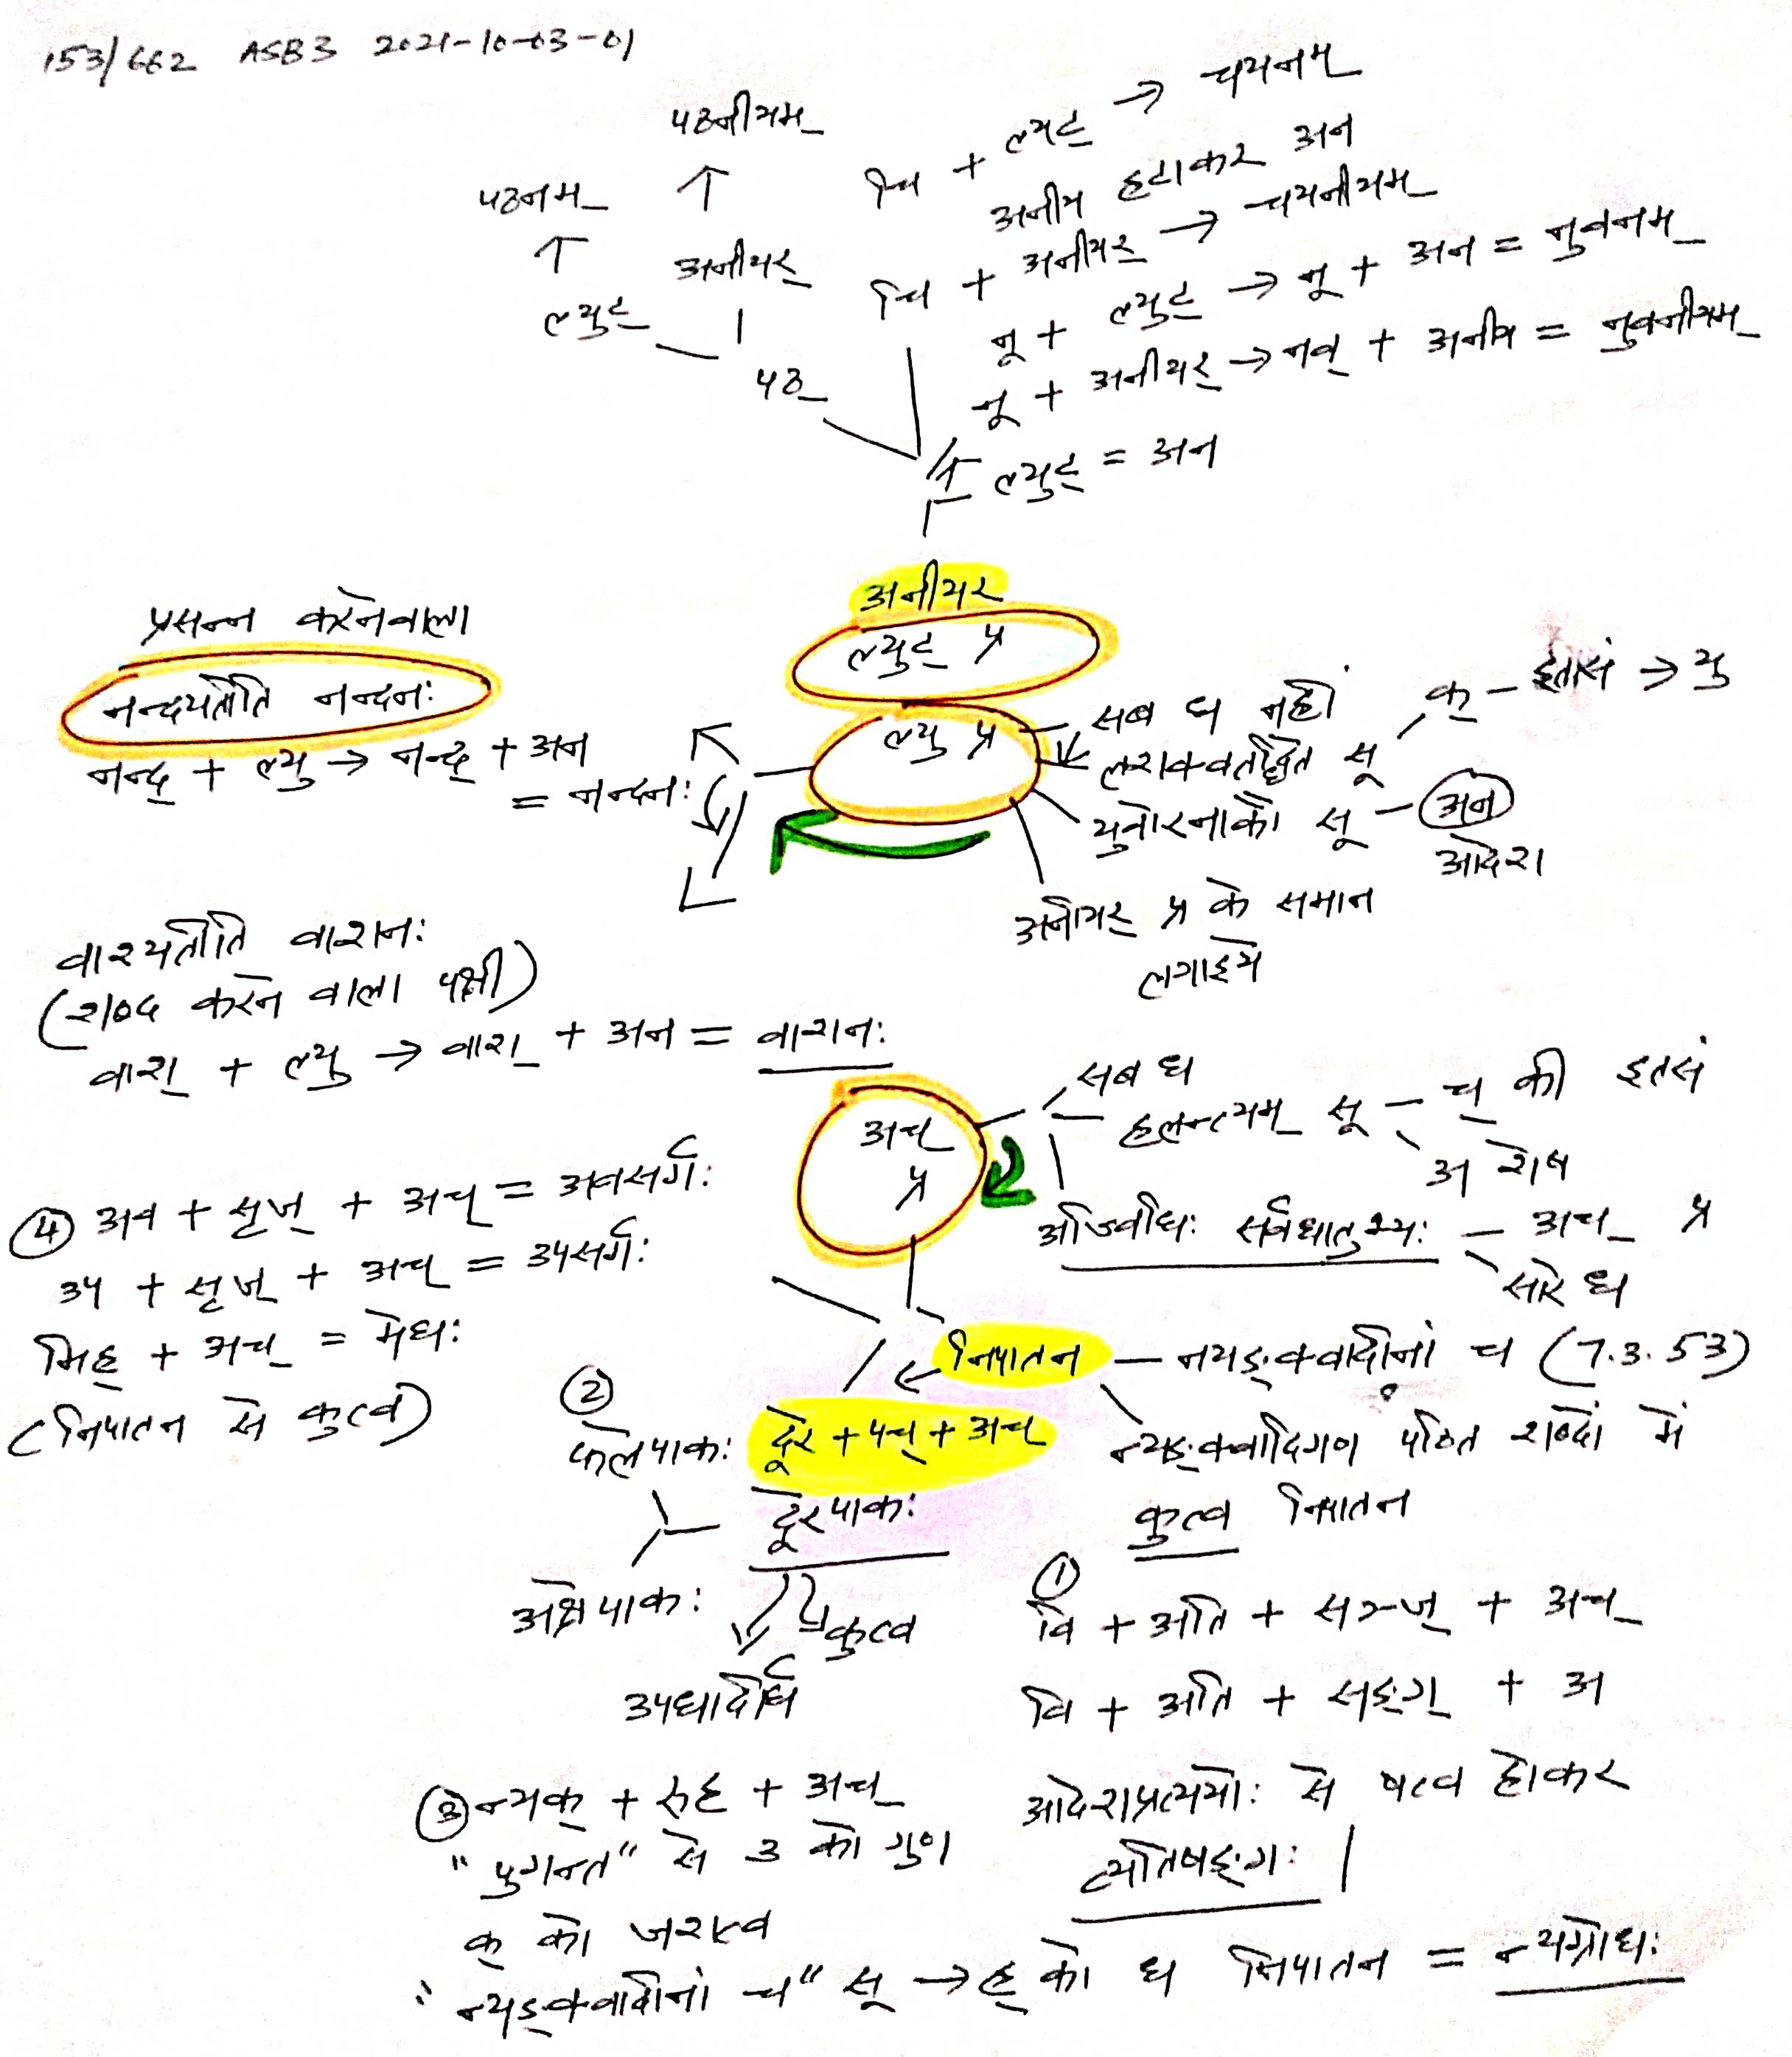 153/662 ASB3 2021-10-03-01
पठनीयम्
↑
अनीयर्
पठनम्
↑
ल्युट्
पठ्
चि + ल्युट् → चयनम्
अनीय हटाकर अन
चि + अनीयर् → चयनीयम्
नू + ल्युट् → नू + अन = नुवनम्
नू + अनीयर् → नव् + अनीय = नुवनीयम्
ल्युट् = अन
अनीयर
ल्युट् प्र
ल्यु प्र
सब ध नहीं
लशक्वतद्धिते सू
क् - इतसं → यु
युवोरनाकौ सू - अन
आदेश
अनीयर् प्र के समान
लगाइये
प्रसन्न करनेवाला
नन्दयतीति नन्दनः
नन्द् + ल्यु → नन्द् + अन
= नन्दनः
वाश्यतीति वाशनः
(शब्द करने वाला पक्षी)
वाश् + ल्यु → वाश् + अन = वाशनः
अच्
प्र
सब ध
हलन्त्यम् सू - च् की इतसं
अ शेष
अज्विधिः सर्वधातुभ्यः - अच् प्र
सारे ध
निपातन - न्यङ्क्वादीनां च (7.3.53)
न्यङ्क्वादिगण पठित शब्दों में
कुत्व निपातन
① वि + अति + सञ्ज् + अच्
वि + अति + सङ्ग् + अ
आदेशप्रत्यययोः से षत्व होकर
व्यतिषङ्गः |
② फलेपाकः
दूर + पच् + अच्
दूरेपाकः
क्षणेपाकः
कुत्व
उपधादीर्घ
③ न्यक् + रुह् + अच्
"पुगन्त" से उ को गुण
क् को जश्त्व
"न्यङ्क्वादीनां च" सू → ह् को ध निपातन = न्यग्रोधः
④ अव + सृज् + अच् = अवसर्गः
उप + सृज् + अच् = उपसर्गः
मिह् + अच् = मेघः
(निपातन से कुत्व)